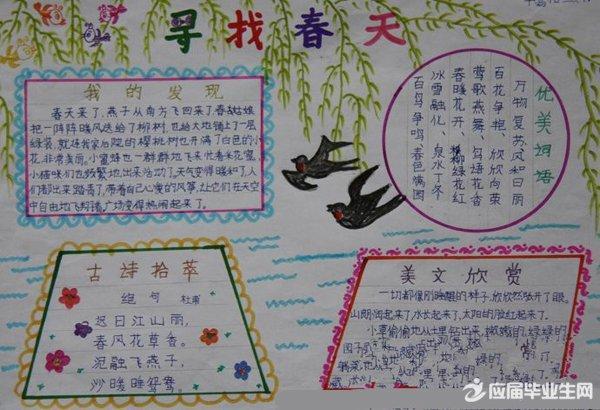 寻找春天
我的发现
春天来了，燕子从南方飞回来了，春姑娘
把一阵阵暖风送给了柳树，也给大地铺上了一层
绿装，就连我家后院的樱桃树也开满了白色的小
花，非常美丽。小蜜蜂也一群群地飞来忙着采花蜜，
小猫咪们也频繁地出来活动了，天气变得暖和了，人
们都出来踏青了，带着自己心爱的风筝，让它们在天空
中自由地飞翔着，广场变得热闹起来了。
优美词语
万物复苏 风和日丽
百花争艳、欣欣向荣
莺歌燕舞、鸟语花香
春暖花开、柳绿花红
冰雪融化、泉水丁冬
百鸟争鸣、春色满园
古诗拾萃
绝句 杜甫
迟日江山丽，
春风花草香。
泥融飞燕子，
沙暖睡鸳鸯。
美文欣赏
一切都像刚睡醒的样子，欣欣然张开了眼。
山朗润起来了，水长起来了，太阳的脸红起来了。
小草偷偷地从土里钻出来，嫩嫩的，绿绿的，
应届毕业生网